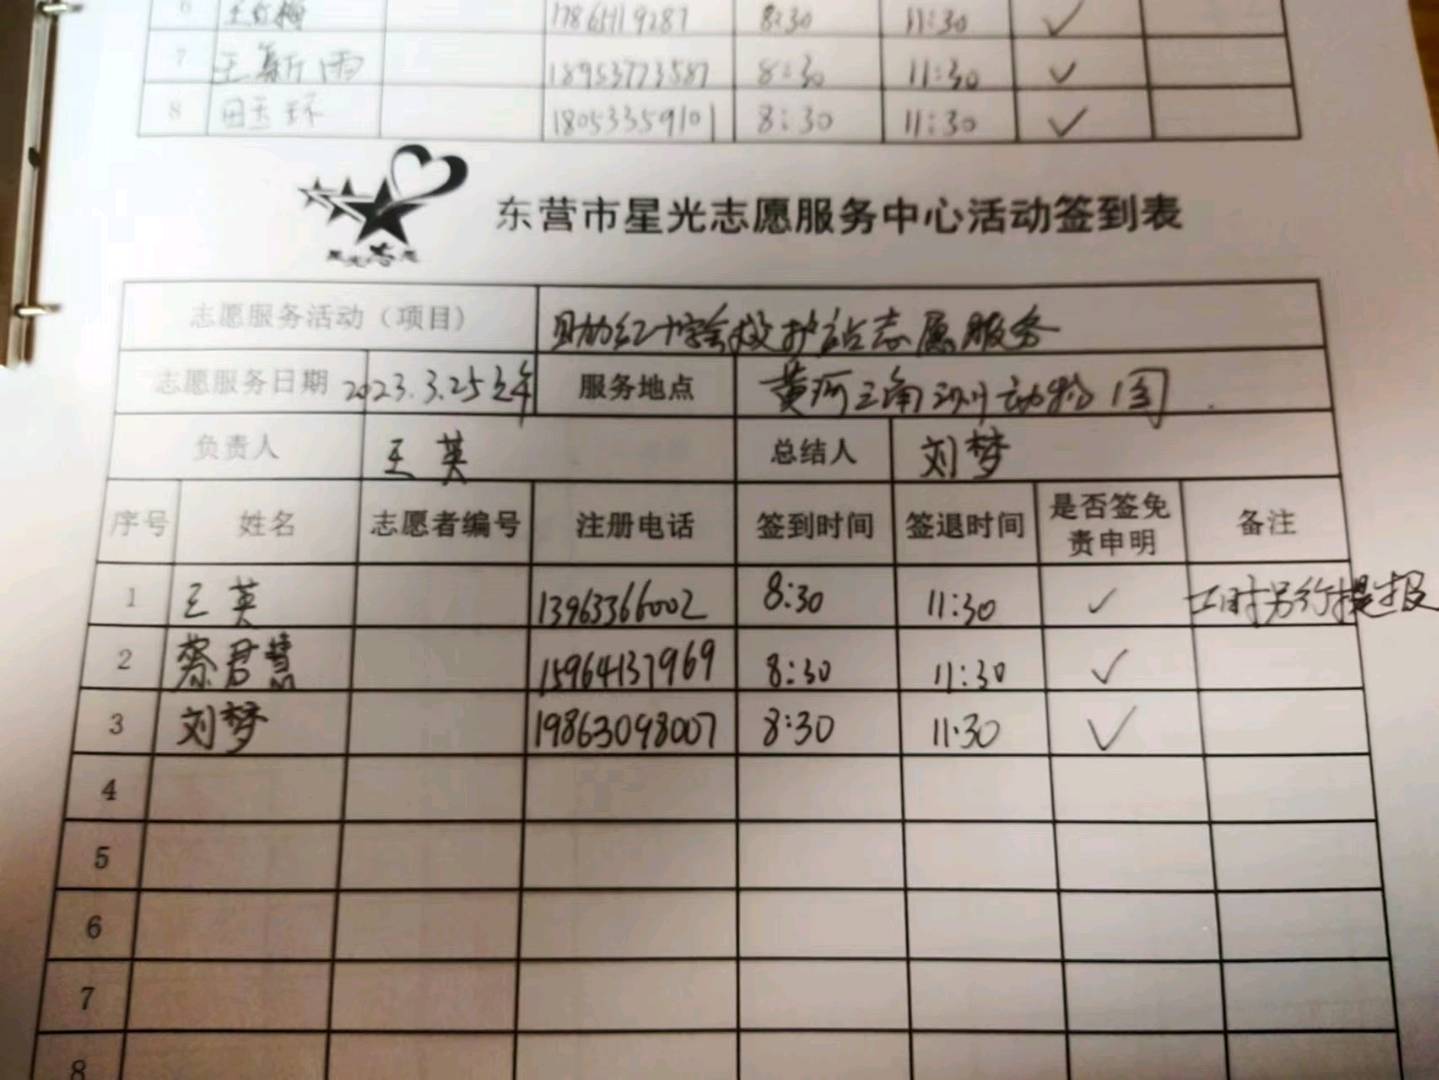 6 王红梅 8:30 11:30 ✓
7 王新雨 18953773587 8:30 11:30 ✓
8 田玉环 18053359101 8:30 11:30 ✓
星光志愿
东营市星光志愿服务中心活动签到表
志愿服务活动（项目） 助红十字会救护站志愿服务
志愿服务日期 2023.3.25上午 服务地点 黄河三角洲动物园
负责人 王英 总结人 刘梦
序号 姓名 志愿者编号 注册电话 签到时间 签退时间 是否签免责申明 备注
1 王英 13963366002 8:30 11:30 ✓ 工时另行提报
2 蔡君慧 15964137969 8:30 11:30 ✓
3 刘梦 19863098007 8:30 11:30 ✓
4
5
6
7
8